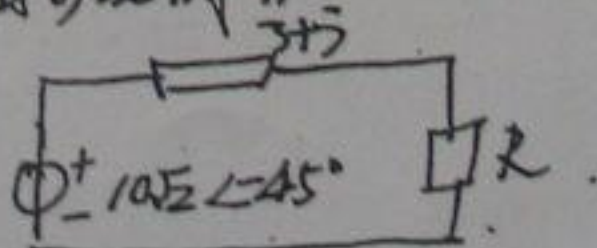 3+j
+
- 10√2∠-45°
R